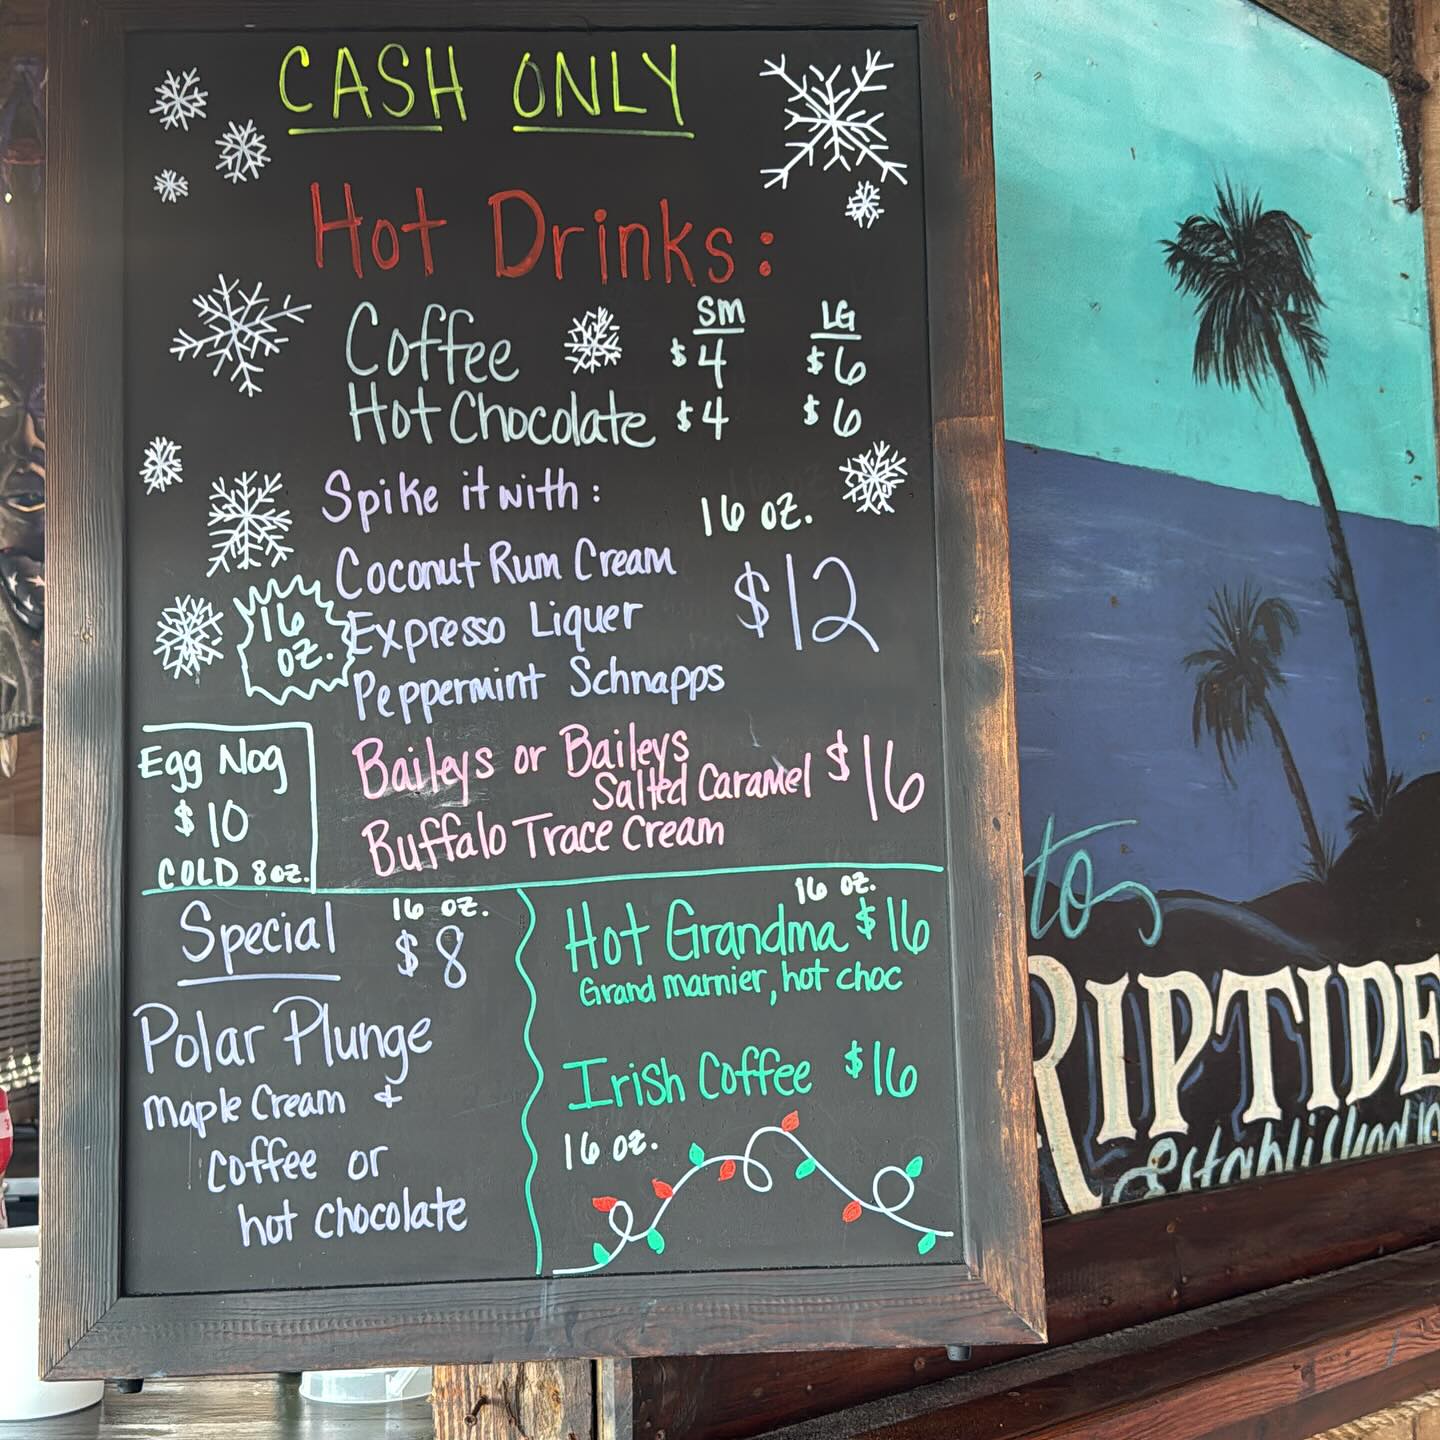 CASH ONLY
Hot Drinks:
SM LG
Coffee $4 $6
Hot Chocolate $4 $6
Spike it with:
16 oz.
Coconut Rum Cream
$12
16 oz.
Expresso Liquer
Peppermint Schnapps
Egg Nog
$10
COLD 8oz.
Baileys or Baileys
Salted Caramel $16
Buffalo Trace Cream
Special
16 oz.
$8
Polar Plunge
Maple Cream &
Coffee or
hot chocolate
16 oz.
Hot Grandma $16
Grand marnier, hot choc
Irish Coffee $16
16 oz.
to
RIPTIDE